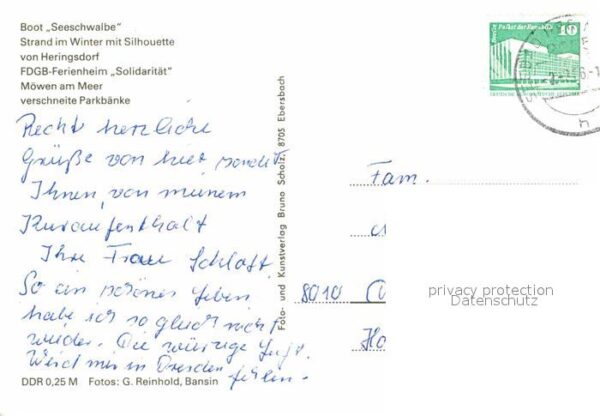 Boot „Seeschwalbe“
Strand im Winter mit Silhouette
von Heringsdorf
FDGB-Ferienheim „Solidarität“
Möwen am Meer
verschneite Parkbänke
Recht herzliche
Grüße von hier sendet
Ihnen von meinem
Kuraufenthalt
Ihre Frau Schloft
So ein schönes Leben
habe ich so gleich nicht
wieder. Die würzige Luft
wird mir in Dresden fehlen.
DDR 0,25 M Fotos: G. Reinhold, Bansin
Foto- und Kunstverlag Bruno Scholz, 8705 Ebersbach
Berlin, Palast der Republik
10
Fam.
8010
privacy protection
Datenschutz